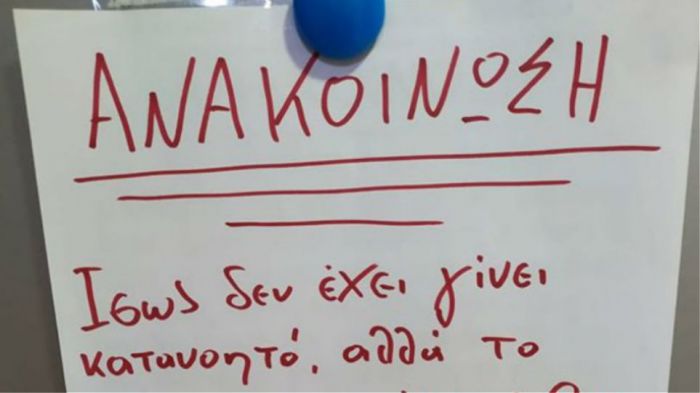 ΑΝΑΚΟΙΝΩΣΗ
Ισως δεν έχει γίνει
κατανοητό, αλλά το